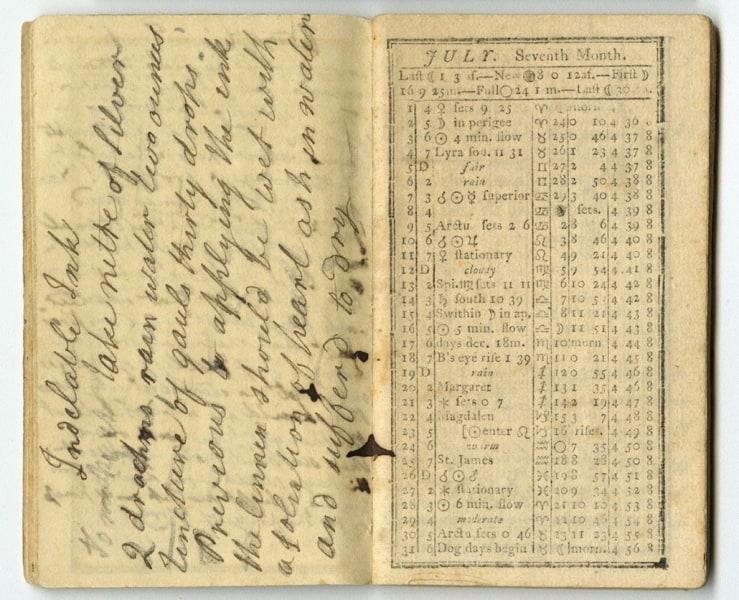 Indelable Ink
Take nitre of Silver
2 drachms rain water two ounces
tincture of gauls thirty drops.
Previous to applying the ink
the linnen should be wet with
a solution of pearl ash in water
and sufferd to dry
JULY. Seventh Month.
Laſt ☾ 1 3 af.—New ● 8 0 12af.—Firſt ☽
16 9 25m.—Full ○ 24 1 m.—Laſt ☾ 30
1 4 ♀ ſets 9 25 ♈ morn
2 5 ☽ in perigee ♉ 24 0 10 4 36 8
3 6 ⊙ 4 min. ſlow ♉ 25 0 46 4 37 8
4 7 Lyra ſou. 11 31 ♉ 26 1 23 4 37 8
5 D fair ♊ 27 2 4 4 37 8
6 2 rain ♊ 28 2 50 4 38 8
7 3 ☌ ⊙ ☿ ſuperior ♋ 29 3 40 4 38 8
8 4 ♋ ● ſets. 4 39 8
9 5 Arctu ſets 2 6 ♌ 2 8 6 4 39 8
10 6 ☌ ⊙ ♃ ♌ 3 8 46 4 40 8
11 7 ♀ ſtationary ♌ 4 9 21 4 40 8
12 D cloudy ♍ 5 9 54 4 41 8
13 2 Spi. ♍ ſets 11 11 ♍ 6 10 24 4 42 8
14 3 ♄ ſouth 10 39 ♎ 7 10 5 4 42 8
15 4 Swithin ☽ in ap. ♎ 8 11 21 4 43 8
16 5 ⊙ 5 min. ſlow ♎ ☽ 11 51 4 43 8
17 6 days dec. 18m. ♏ 10 morn 4 44 8
18 7 B's eye riſe 1 39 ♏ 11 0 21 4 45 8
19 D rain ♐ 12 0 55 4 46 8
20 2 Margaret ♐ 13 1 35 4 46 8
21 3 ⚹ ſets 0 7 ♐ 14 2 19 4 47 8
22 4 Magdalen ♑ 15 3 7 4 48 8
23 5 [⊙ enter ♌ ♑ 16 riſes. 4 49 8
24 6 warm ♒ ○ 7 35 4 50 8
25 7 St. James ♒ 18 8 28 4 50 8
26 D ☌ ⊙ ♂ ♓ 19 8 57 4 51 8
27 2 ⚹ ſtationary ♓ 20 9 34 4 52 8
28 3 ⊙ 6 min. ſlow ♈ 21 10 10 4 53 8
29 4 moderate ♈ 22 10 4 54 8
30 5 Arctu ſets 0 46 ♉ 23 11 23 4 55 8
31 6 Dog days begin ♉ ☾ morn. 4 56 8